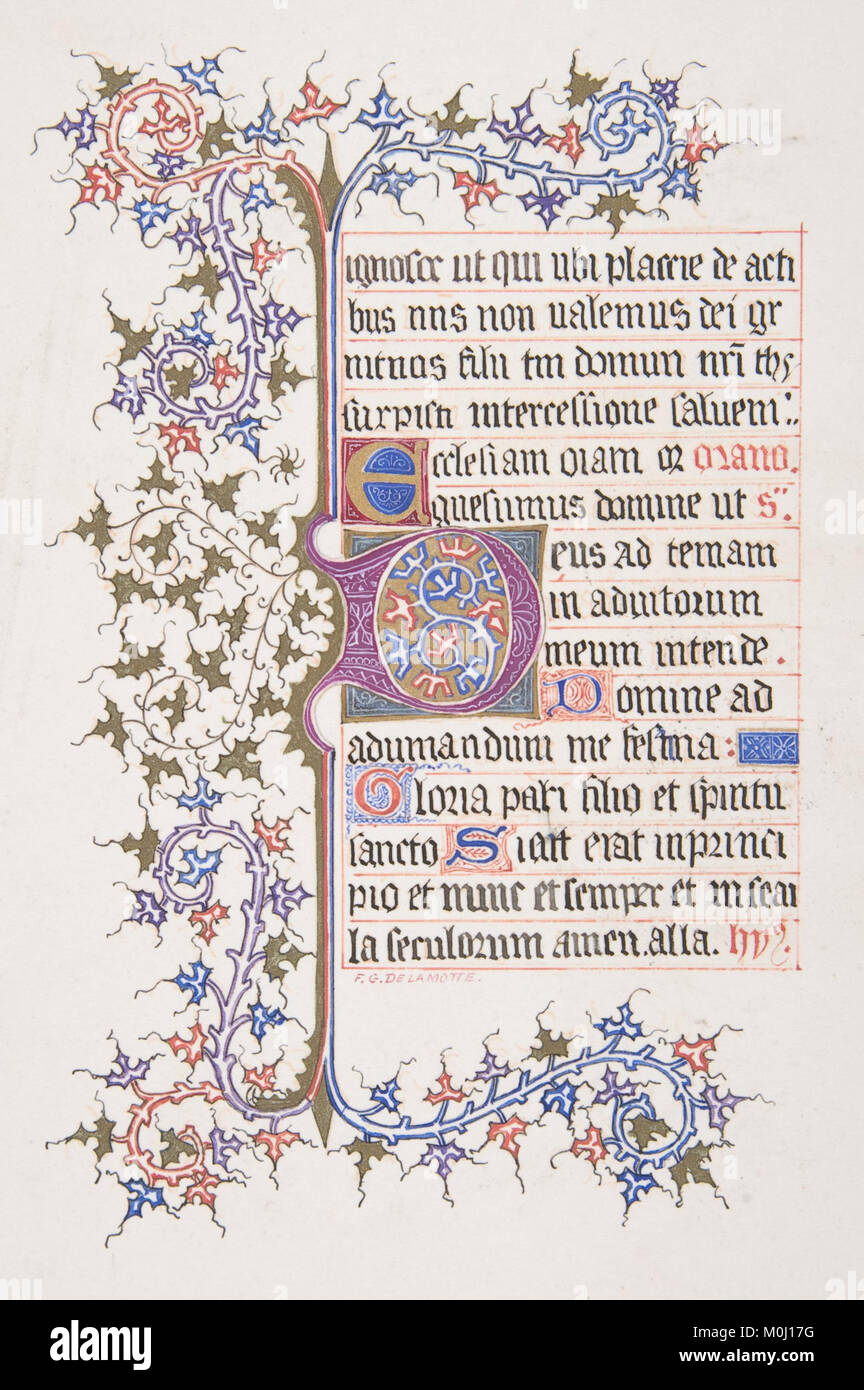 ignosce ut qui ubi placere de acti
bus nns non ualemus dei gr
nitricis filii tm domun nrī ihy
surpisti intercessione saluem:.
Ecclesiam oram or orano.
quesumus domine ut S".
Deus ad temam
in aduitorum
meum intende.
Domine ad
adumandum me festina:
Gloria patri filio et spiritu
sancto Sicut erat in princi
pio et nunc et semper et in seai
la seculorum amen. alla. hy
F. G. DELAMOTTE.
alamy
Image ID: M0J17G
www.alamy.com